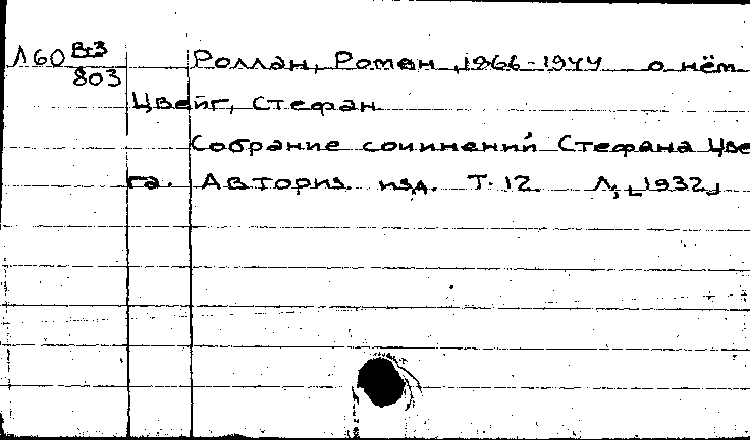 Л60 В-3 Роллан, Ромен, 1966-1944 о нём
803
Цвейг, Стефан
Собрание сочинений Стефана Цве
га. Авториз. изд. Т. 12 Л., [1932]